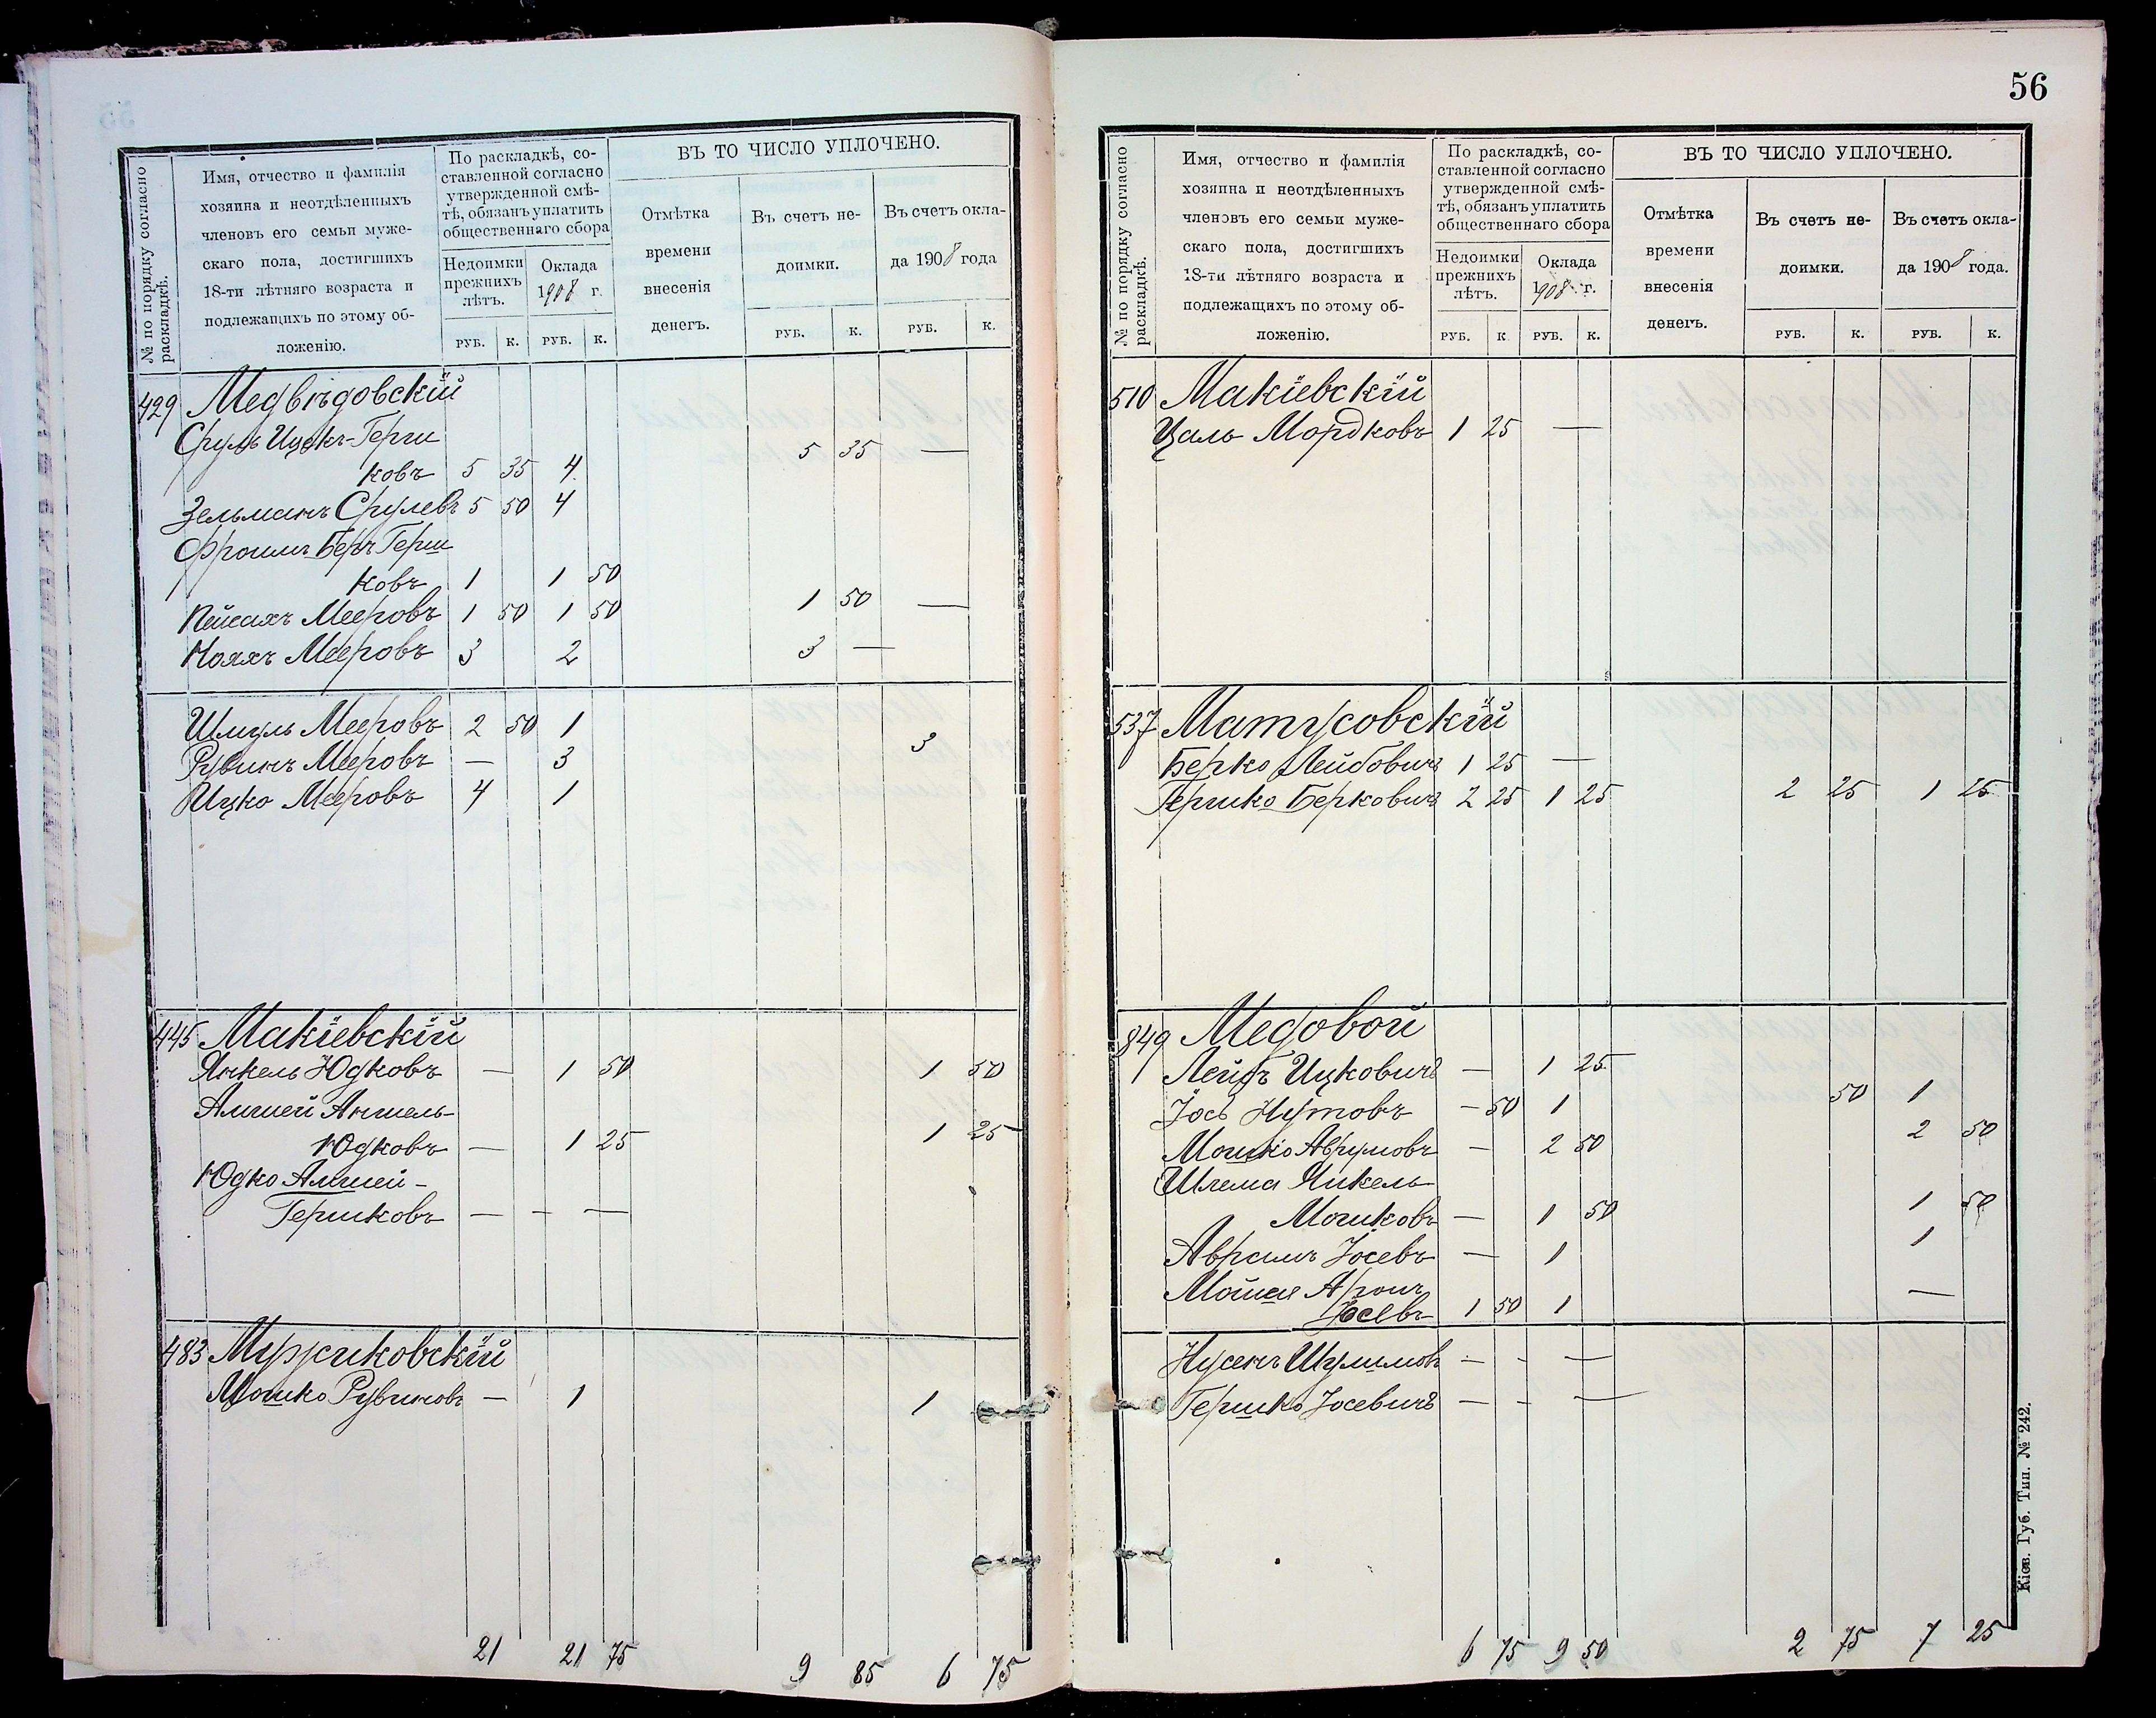 № по порядку согласно раскладкѣ.
Имя, отчество и фамилія
хозяина и неотдѣленныхъ
членовъ его семьи муже-
скаго пола, достигшихъ
18-ти лѣтняго возраста и
подлежащихъ по этому об-
ложенію.
По раскладкѣ, со-
ставленной согласно
утвержденной смѣ-
тѣ, обязанъ уплатить
общественнаго сбора
Недоимки
прежнихъ
лѣтъ.
Оклада
1908 г.
РУБ. К. РУБ. К.
ВЪ ТО ЧИСЛО УПЛОЧЕНО.
Отмѣтка
времени
внесенія
денегъ.
Въ счетъ не-
доимки.
Въ счетъ окла-
да 1908 года
РУБ. К. РУБ. К.
429 Медвѣдовскій
Сруль Ицекъ-Герш
ковъ 5 35 4 5 35 —
Зельманъ Срулевъ 5 50 4
Фроимъ Беръ Герш
ковъ 1 1 50
Пейсахъ Мееровъ 1 50 1 50 1 50 —
Ноахъ Мееровъ 3 2 3 —
Шмуль Мееровъ 2 50 1
Рувинъ Мееровъ — 3 3
Ицко Мееровъ 4 1
445 Макіевскій
Янкель Юдковъ — 1 50 1 50
Алтшей Аншель-
Юдковъ — 1 25 1 25
Юдко Алтшей-
Гершковъ — — —
483 Муржиковскій
Мошко Рувиновъ — 1 1
21 21 75 9 85 6 75
56
№ по порядку согласно раскладкѣ.
Имя, отчество и фамилія
хозяина и неотдѣленныхъ
членовъ его семьи муже-
скаго пола, достигшихъ
18-ти лѣтняго возраста и
подлежащихъ по этому об-
ложенію.
По раскладкѣ, со-
ставленной согласно
утвержденной смѣ-
тѣ, обязанъ уплатить
общественнаго сбора
Недоимки
прежнихъ
лѣтъ.
Оклада
1908 г.
РУБ. К РУБ. К.
ВЪ ТО ЧИСЛО УПЛОЧЕНО.
Отмѣтка
времени
внесенія
денегъ.
Въ счетъ не-
доимки.
Въ счетъ окла-
да 1908 года.
РУБ. К. РУБ. К.
510 Макіевскій
Цаль Мордковъ 1 25 —
537 Матусовскій
Берко Лейбовичъ 1 25 —
Гершко Берковичъ 2 25 1 25 2 25 1 25
849 Медовой
Лейбъ Ицковичъ — 1 25
Іось Нутовъ — 50 1 50 1
Мошко Аврумовъ — 2 50 2 50
Шлема Янкель
Мошковъ — 1 50 1 50
Аврамъ Іосевъ — 1 1
Мойше Аронъ
Іосевъ 1 50 1 —
Нусенъ Шулимовъ — - —
Гершко Іосевичъ — - —
6 75 9 50 2 75 7 25
Кіев. Губ. Тип. № 242.